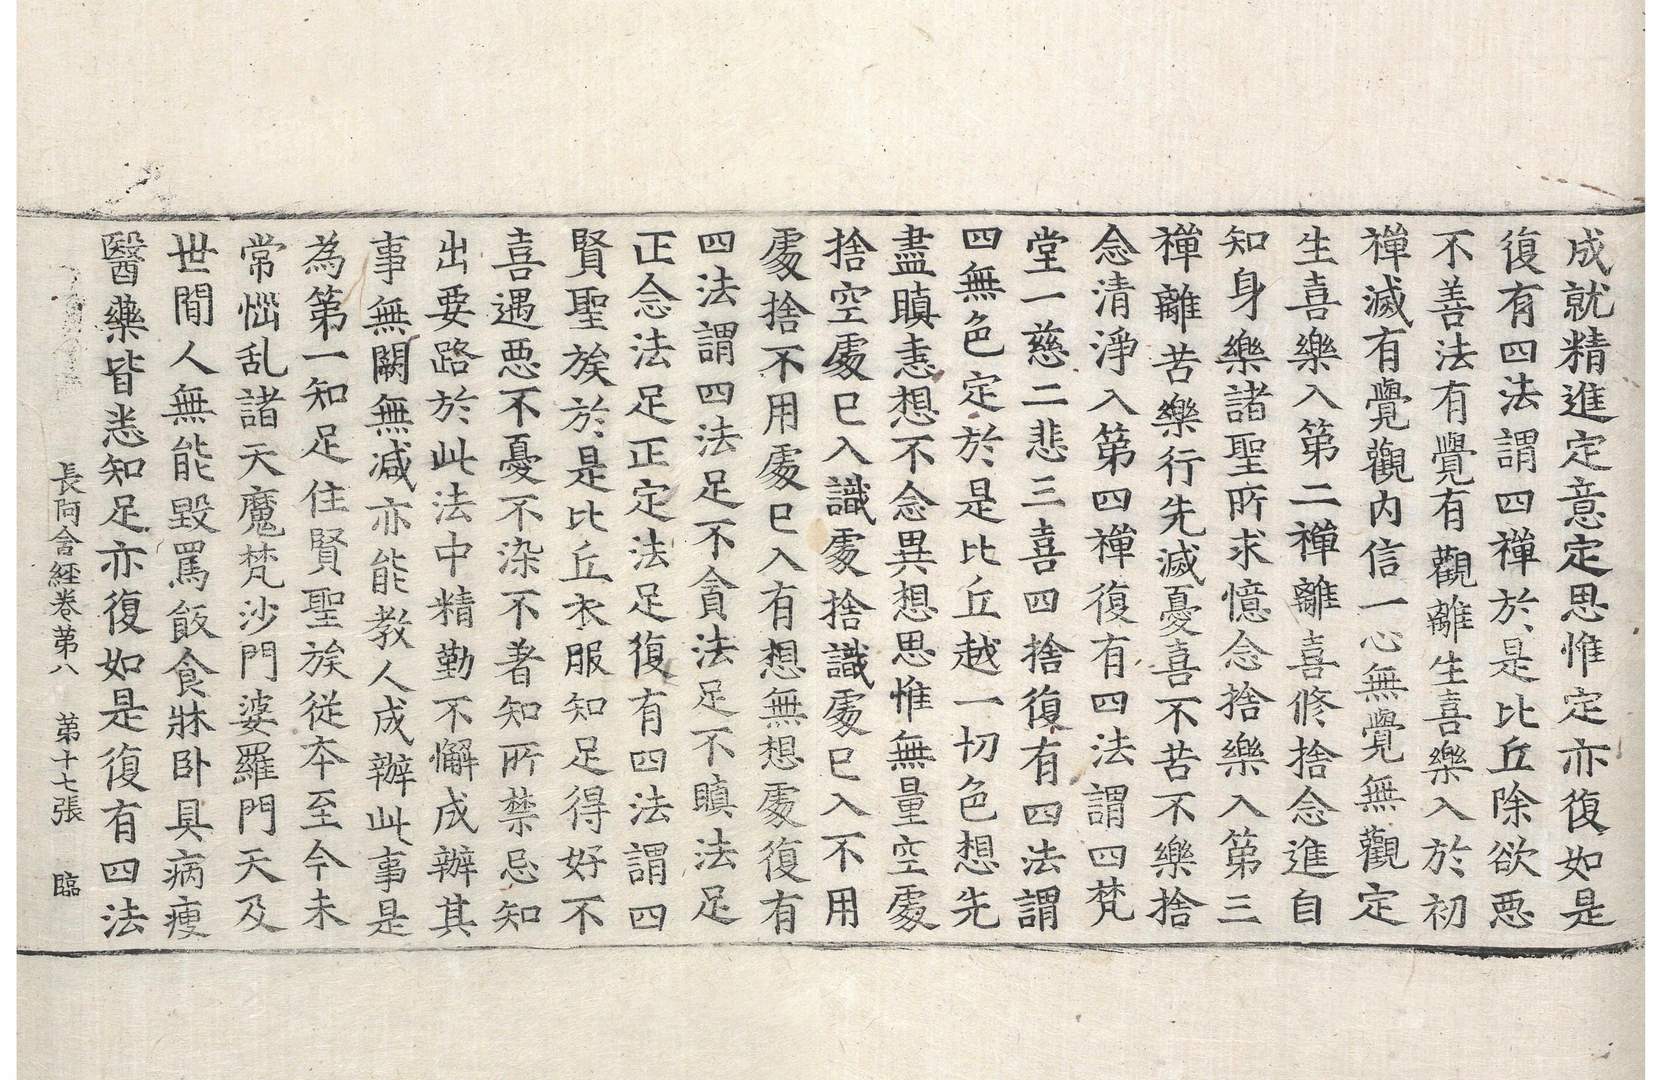 成就精進定意定思惟定亦復如是
復有四法謂四禪於是比丘除欲惡
不善法有覺有觀離生喜樂入於初
禪滅有覺觀內信一心無覺無觀定
生喜樂入第二禪離喜修捨念進自
知身樂諸聖所求憶念捨樂入第三
禪離苦樂行先滅憂喜不苦不樂捨
念清淨入第四禪復有四法謂四梵
堂一慈二悲三喜四捨復有四法謂
四無色定於是比丘越一切色想先
盡瞋恚想不念異想思惟無量空處
捨空處已入識處捨識處已入不用
處捨不用處已入有想無想處復有
四法謂四法足不貪法足不瞋法足
正念法足正定法足復有四法謂四
賢聖族於是比丘衣服知足得好不
喜遇惡不憂不染不著知所禁忌知
出要路於此法中精勤不懈成辦其
事無闕無減亦能教人成辦此事是
為第一知足住賢聖族從本至今未
常惱乱諸天魔梵沙門婆羅門天及
世間人無能毀罵飯食牀臥具病瘦
醫藥皆悉知足亦復如是復有四法
長阿含経卷第八 第十七張 臨